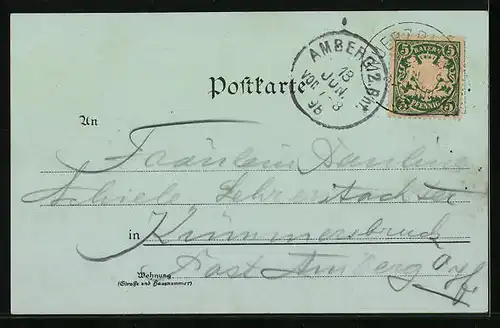 AMBERG 2. Bhf.
13
JUN.
Vor. 7-8
98
BAYERN
5 5
5 PFENNIG 5
Postkarte
An
Fräulein Pauline
Schiele Lehrerstochter
in Kümmersbruck
Post Amberg O/pf.
Wohnung
(Straße und Hausnummer)